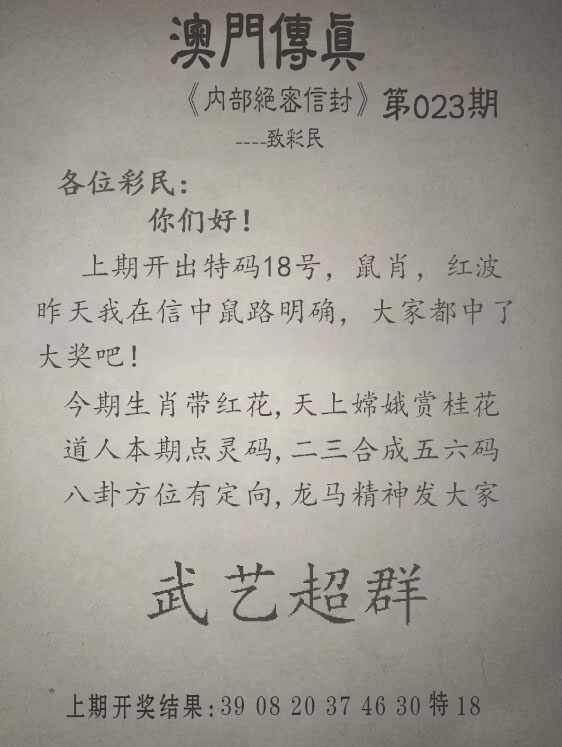 澳門傳眞
《内部絕密信封》第023期
----致彩民
各位彩民：
你们好！
上期开出特码18号，鼠肖，红波
昨天我在信中鼠路明确，大家都中了
大奖吧！
今期生肖带红花,天上嫦娥赏桂花
道人本期点灵码,二三合成五六码
八卦方位有定向,龙马精神发大家
武艺超群
上期开奖结果:39 08 20 37 46 30 特 18